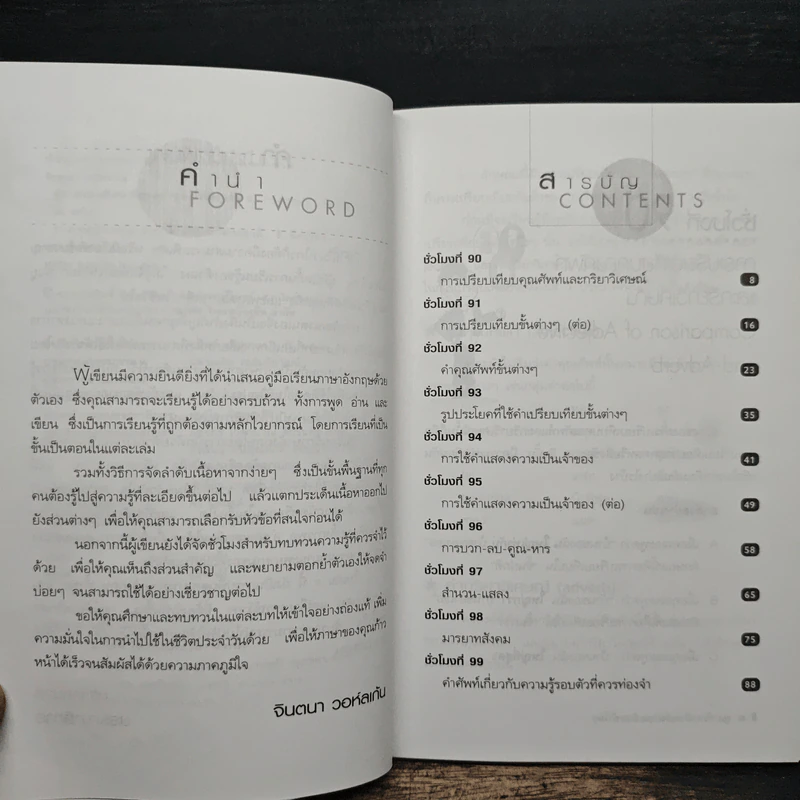 คำนำ
FOREWORD
ผู้เขียนมีความยินดียิ่งที่ได้นำเสนอคู่มือเรียนภาษาอังกฤษด้วย
ตัวเอง ซึ่งคุณสามารถจะเรียนรู้ได้อย่างครบถ้วน ทั้งการพูด อ่าน และ
เขียน ซึ่งเป็นการเรียนรู้ที่ถูกต้องตามหลักไวยากรณ์ โดยการเรียนที่เป็น
ขั้นเป็นตอนในแต่ละเล่ม
รวมทั้งวิธีการจัดลำดับเนื้อหาจากง่ายๆ ซึ่งเป็นขั้นพื้นฐานที่ทุก
คนต้องรู้ไปสู่ความรู้ที่ละเอียดขึ้นต่อไป แล้วแตกประเด็นเนื้อหาออกไป
ยังส่วนต่างๆ เพื่อให้คุณสามารถเลือกรับหัวข้อที่สนใจก่อนได้
นอกจากนี้ผู้เขียนยังได้จัดชั่วโมงสำหรับทบทวนความรู้ที่ควรจำไว้
ด้วย เพื่อให้คุณเห็นถึงส่วนสำคัญ และพยายามตอกย้ำตัวเองให้จดจำ
บ่อยๆ จนสามารถใช้ได้อย่างเชี่ยวชาญต่อไป
ขอให้คุณศึกษาและทบทวนในแต่ละบทให้เข้าใจอย่างถ่องแท้ เพิ่ม
ความมั่นใจในการนำไปใช้ในชีวิตประจำวันด้วย เพื่อให้ภาษาของคุณก้าว
หน้าได้เร็วจนสัมผัสได้ด้วยความภาคภูมิใจ
จินตนา วอห์ลเก้น
สารบัญ
CONTENTS
ชั่วโมงที่ 90
การเปรียบเทียบคุณศัพท์และกริยาวิเศษณ์ 8
ชั่วโมงที่ 91
การเปรียบเทียบขั้นต่างๆ (ต่อ) 16
ชั่วโมงที่ 92
คำคุณศัพท์ขั้นต่างๆ 23
ชั่วโมงที่ 93
รูปประโยคที่ใช้คำเปรียบเทียบขั้นต่างๆ 35
ชั่วโมงที่ 94
การใช้คำแสดงความเป็นเจ้าของ 41
ชั่วโมงที่ 95
การใช้คำแสดงความเป็นเจ้าของ (ต่อ) 49
ชั่วโมงที่ 96
การบวก-ลบ-คูณ-หาร 58
ชั่วโมงที่ 97
สำนวน-แสลง 65
ชั่วโมงที่ 98
มารยาทสังคม 75
ชั่วโมงที่ 99
คำศัพท์เกี่ยวกับความรู้รอบตัวที่ควรท่องจำ 88